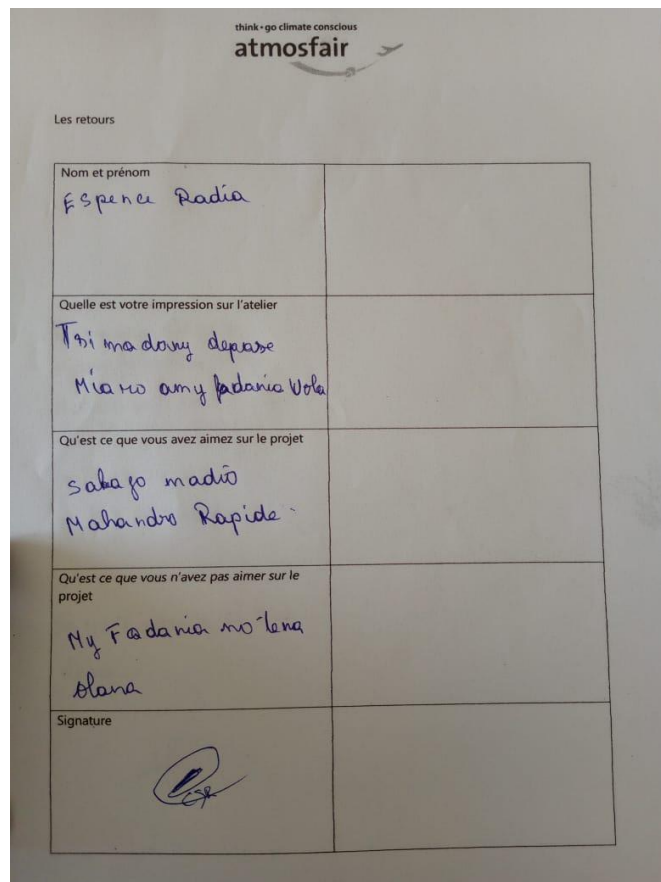 think • go climate conscious
atmosfair
Les retours
Nom et prénom
Espence Radia
Quelle est votre impression sur l'atelier
Tsi madany depase
Miaro amy fadania Vola
Qu'est ce que vous avez aimez sur le projet
sakafo madio
Mahandro Rapide
Qu'est ce que vous n'avez pas aimer sur le
projet
My Fadania no lena
olana
Signature